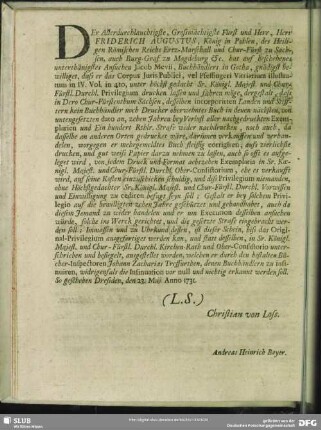 DEr Allerdurchlauchtigste, Großmächtigste Fürst und Herr, Herr
FRIDERICH AUGUSTUS, König in Pohlen, des Heili-
gen Römischen Reichs Ertz-Marschall und Chur-Fürst zu Sach-
sen, auch Burg-Graf zu Magdeburg etc. hat auf beschehenes
unterthänigstes Ansuchen Jacob Mevii, Buchhändlers in Gotha, gnädigst be-
williget, daß er das Corpus Juris Publici, vel Pfeffingeri Vitriarium illustra-
tum in IV. Vol. in 4to, unter höchst gedacht Sr. Königl. Majest. und Chur-
Fürstl. Durchl. Privilegium drucken lassen und führen möge, dergestalt, daß
in Dero Chur-Fürstenthum Sachsen, desselben incorporirten Landen und Stif-
tern kein Buchhändler noch Drucker oberwehntes Buch in denen nächsten, von
untengesetzten dato an, zehen Jahren bey Verlust aller nachgedruckten Exem-
plarien und
daselbe an andern Orten gedruckt wäre, darinnen verkauffen und verhan-
deln, worgegen er mehrgemeldtes Buch fleißig corrigiren, aufs zierlichste
drucken, und gut weiß Papier darzu nehmen zu lassen, auch so offt es aufge-
leget wird, von jedem Druck und Format
nigl. Majest. und Chur-Fürstl. Durchl. Ober-Consistorium, ehe es verkaufft
wird, auf seine Kosten einzuschicken schuldig, und diß Privilegium niemanden,
ohne Höchstgedachter Sr. Königl. Majest. und Chur-Fürstl. Durchl. Vorwissen
und Einwilligung zu cediren befugt seyn soll; Gestalt er bey solchem Privile-
gio auf die bewilligten zehen Jahre geschützet und gehandhabet, auch da
diesem Jemand zu wieder handeln und er um Execution desselben ansuchen
würde, solche ins Werck gerichtet, und die gesetzte Strafe eingebracht wer-
den soll; Immassen
nal-Privilegium ausgefertiget werden kan, und statt desselben, in Sr. Königl.
Majest. und Chur-Fürstl. Durchl. Kirchen-Rath und Ober-Consistorio unter-
schrieben und besiegelt, ausgestellet worden, welchen er durch den bestalten Bü-
cher-Inspectorem Johann Zacharias Treffurthen, denen Buchhändlern zu insi-
nuiren, widrigenfalls die Insinuation vor null und nichtig erkannt werden soll.
So geschehen Dresden, den 23. Maji Anno 1731.
(L.S.)
Christian von Loss.
Andreas Heinrich Beyer.
SLUB
Wir führen Wissen.
gefördert von der
Deutschen Forschungsgemeinschaft